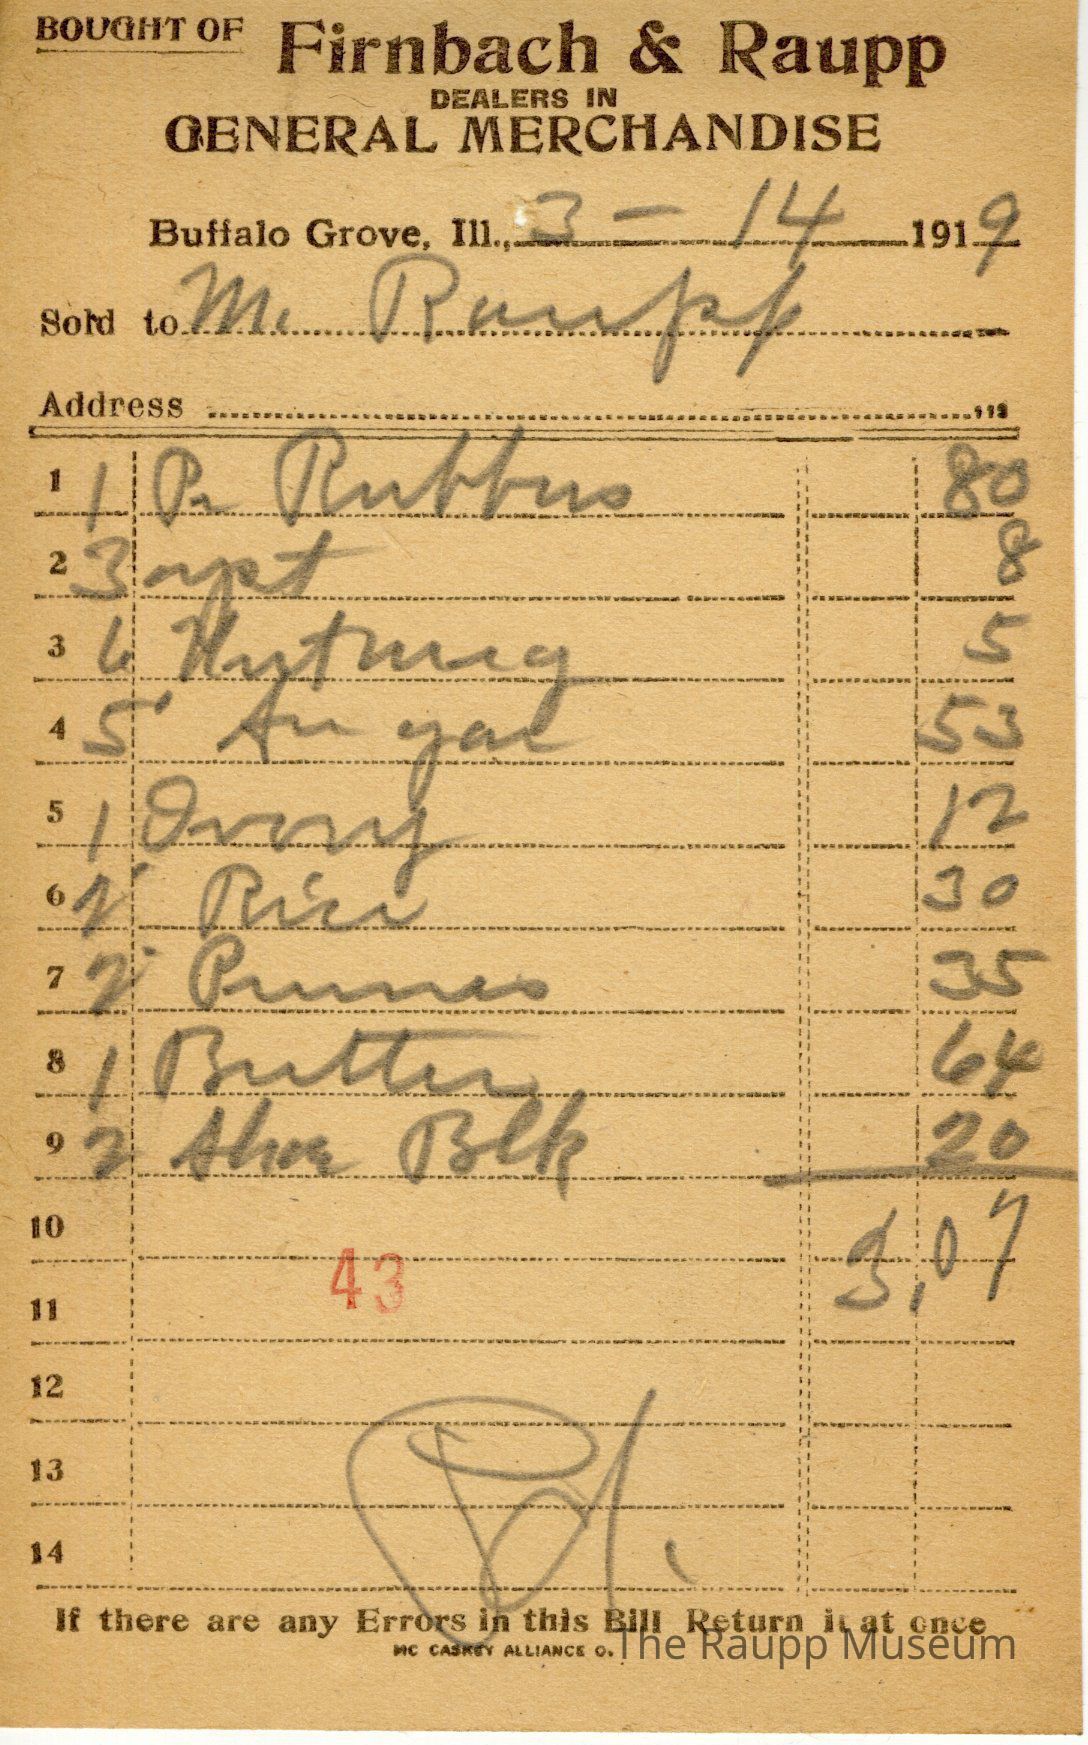 BOUGHT OF Firnbach & Raupp
DEALERS IN
GENERAL MERCHANDISE
Buffalo Grove, Ill., 3 – 14 1919
Sold to M. Raupp
Address
1 1 Pr Rubbers 80
2 3 8
3 6 Nutmeg 5
4 5 Sugar 53
5 1 Ivory 12
6 2 Rice 30
7 2 Prunes 35
8 1 Butter 64
9 2 Shoe Blk 20
10 3,07
43
11
12
13
Pd.
14
If there are any Errors in this Bill Return it at once
MC CASKEY ALLIANCE O.
The Raupp Museum